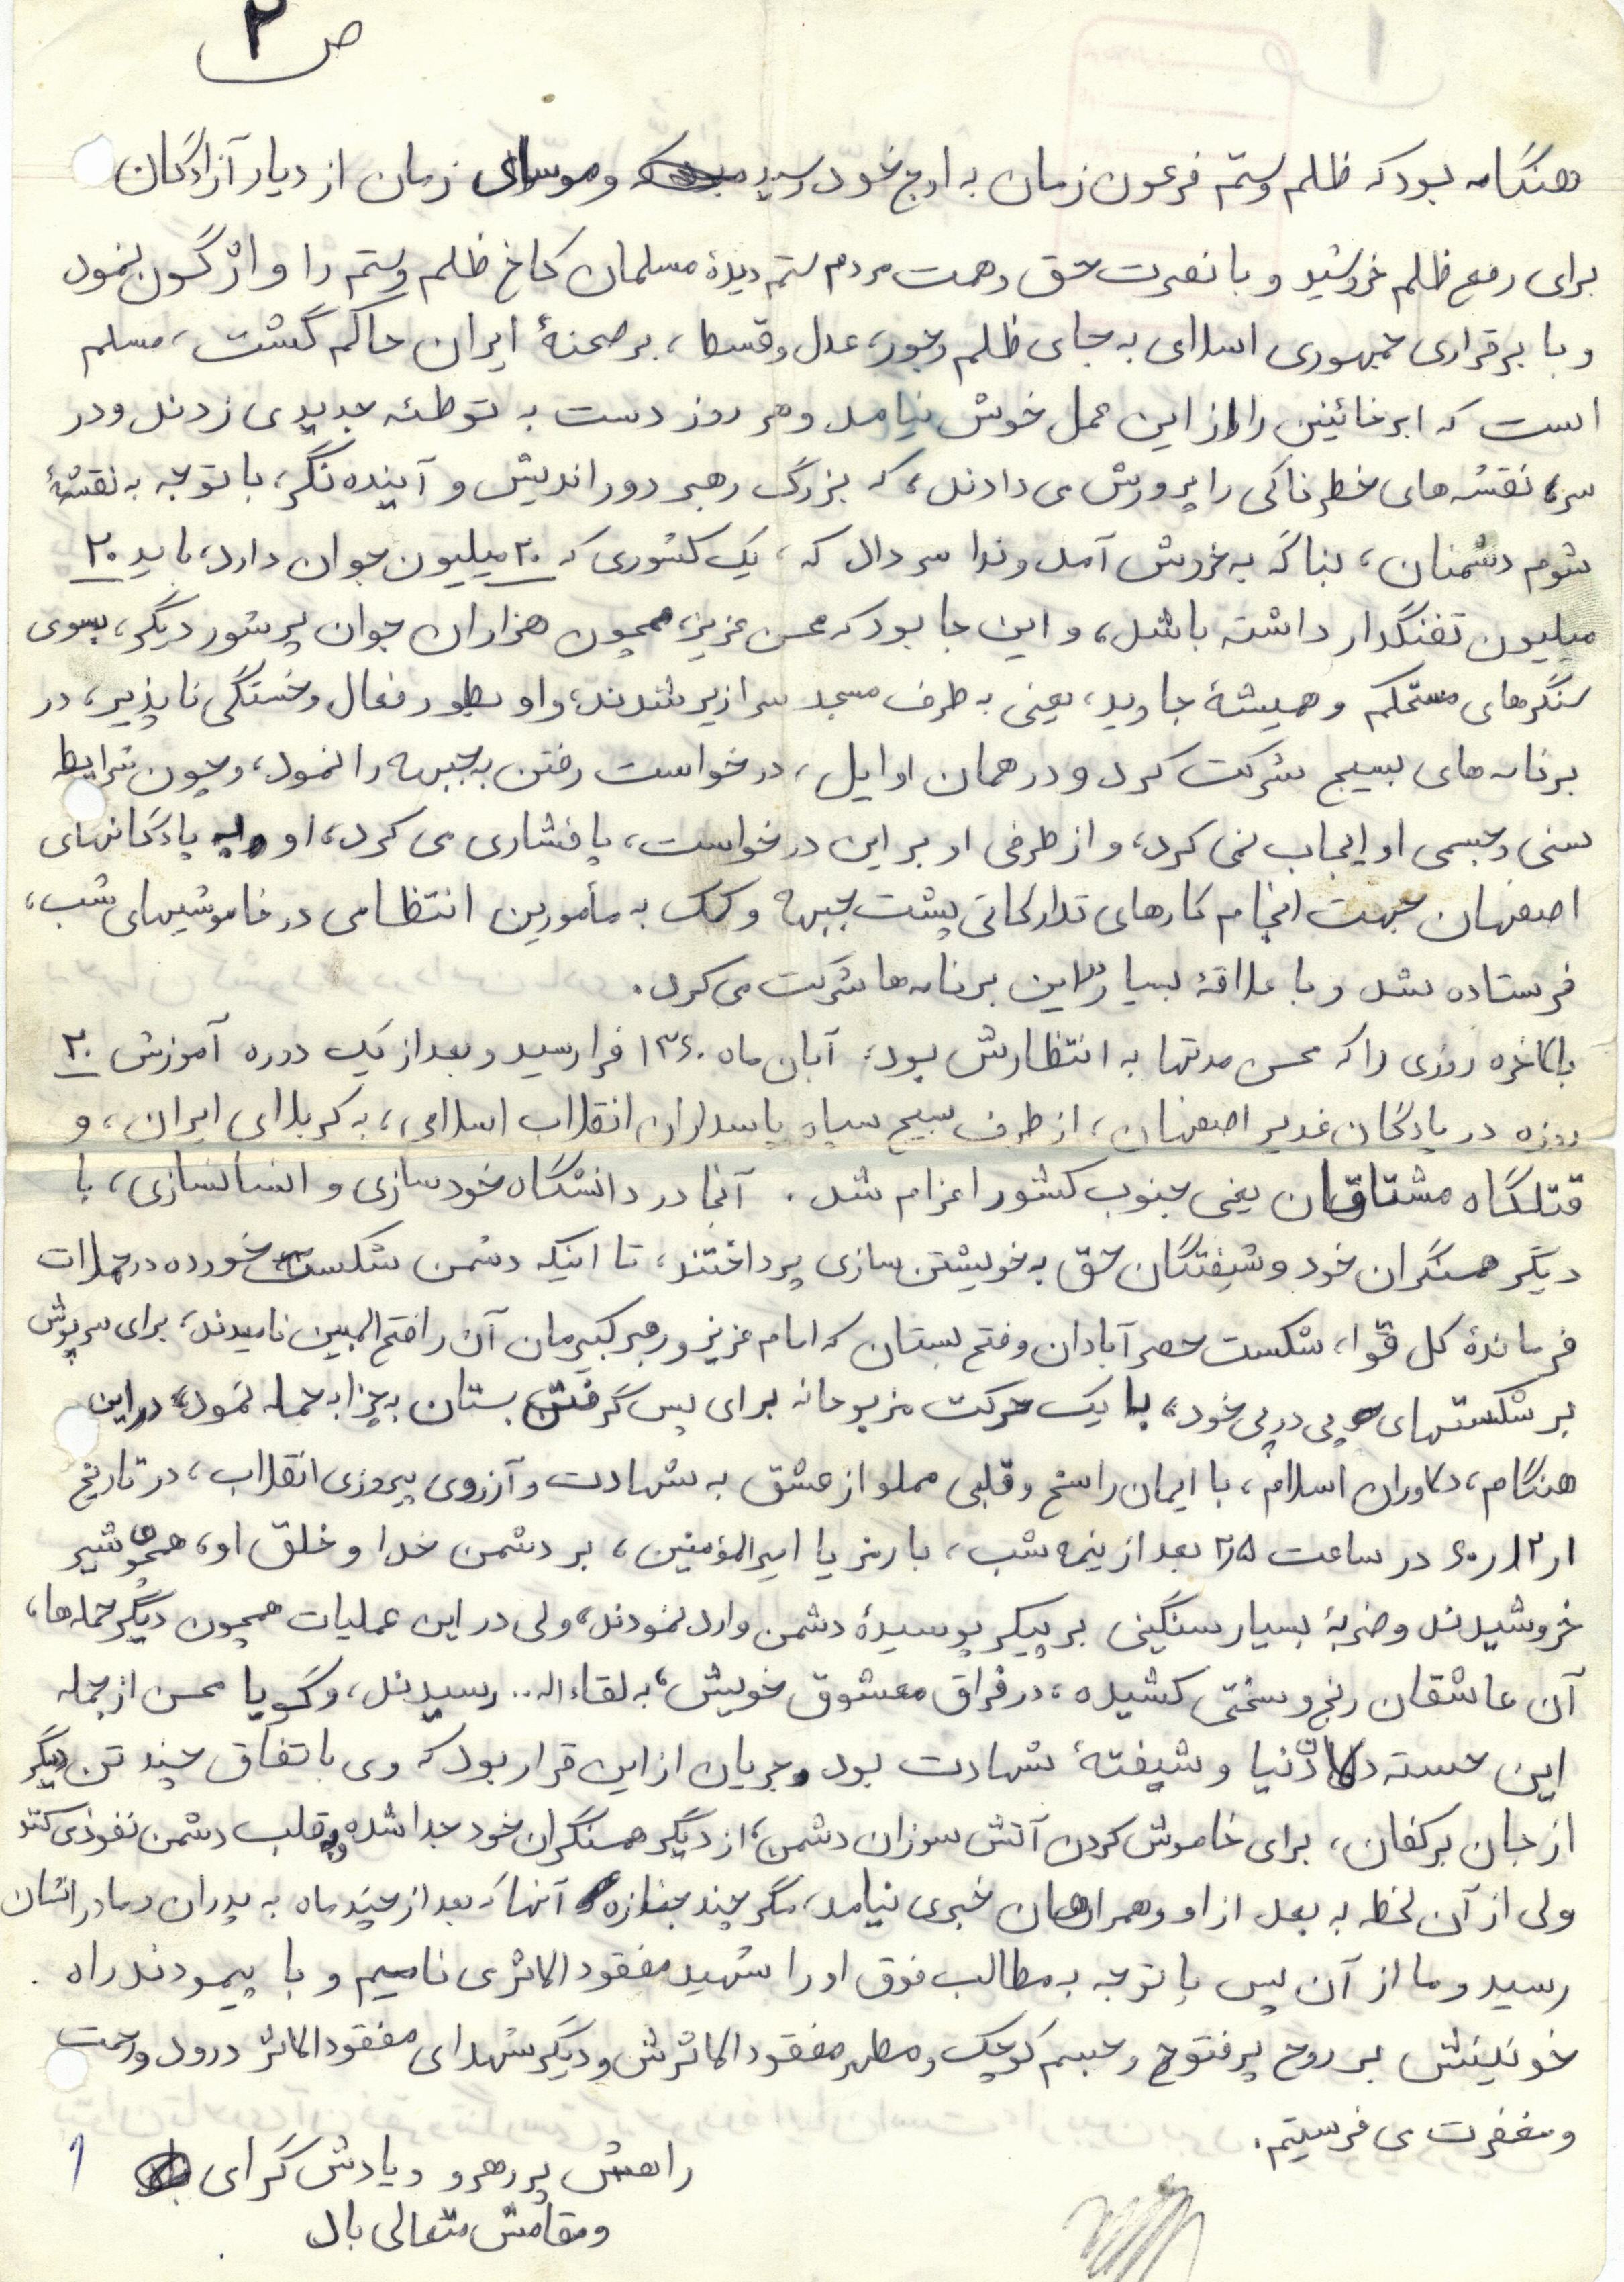 ص ۲
هنگامه بود که ظلم و ستم فرعون زمان به اوج خود رسید و موسای زمان از دیار آزادگان
برای رفع ظلم خروشید و با نصرت حق و همت مردم ستم دیدهٔ مسلمان کاخ ظلم و ستم را واژگون نمود
و با برقراری جمهوری اسلامی به جای ظلم و جور، عدل و قسط، بر صحنهٔ ایران حاکم گشت، مسلم
است که ابر خائنین را از این عمل خوش نیامد و هر روز دست به توطئه جدیدی زدند و در
سر، نقشه های خطرناکی را پرورش می دادند، که بزرگ رهبر دور اندیش و آینده نگر، با توجه به نقشهٔ
شوم دشمنان، بناگه به خروش آمد و ندا سر داد که، یک کشوری که ۲۰ میلیون جوان دارد، باید ۲۰
میلیون تفنگدار داشته باشد، و این جا بود که محسن عزیز، همچون هزاران جوان پرشور دیگر، بسوی
سنگرهای مستحکم و همیشهٔ جاوید، یعنی به طرف مسجد سرازیر شدند، و او بطور فعال و خستگی ناپذیر، در
برنامه های بسیج شرکت کرد و در همان اوایل، درخواست رفتن به جبهه را نمود، و چون شرایط
سنی و جسمی او ایجاب نمی کرد، و از طرفی او بر این درخواست، پافشاری می کرد، او به پادگانهای
اصفهان جهت انجام کارهای تدارکاتی پشت جبهه و کمک به مأمورین انتظامی در خاموشیهای شب،
فرستاده شد و با علاقهٔ بسیار در این برنامه ها شرکت می کرد.
بالاخره روزی را که محسن مدتها به انتظارش بود، آبان ماه ۱۳۶۰ فرا رسید و بعد از یک دوره آموزش ۲۰
روزه در پادگان غدیر اصفهان، از طرف بسیج سپاه پاسداران انقلاب اسلامی، به کربلای ایران، و
قتلگاه مشتاقان یعنی جنوب کشور اعزام شد. آنجا در دانشگاه خودسازی و انسانسازی، با
دیگر همسنگران خود و شیفتگان حق به خویشتن سازی پرداختند، تا اینکه دشمن شکست خورده در حملات
فرماندهٔ کل قوا، شکست حصر آبادان و فتح بستان که امام عزیز و رهبر کبیرمان آن را فتح المبین نامیدند، برای سرپوش
بر شکستهای پی در پی خود، با یک حرکت مزبوحانه برای پس گرفتن بستان به چزابه حمله نمود، در این
هنگام، دلاوران اسلام، با ایمان راسخ و قلبی مملو از عشق به شهادت و آرزوی پیروزی انقلاب، در تاریخ
۱ر۱۲ر۶۰ در ساعت ۲ر۵ بعد از نیمه شب، با رمز یا امیرالمؤمنین، بر دشمن خدا و خلق او، همچو شیر
خروشیدند و ضربهٔ بسیار سنگینی بر پیکر پوسیدهٔ دشمن وارد نمودند، ولی در این عملیات همچون دیگر حمله ها،
آن عاشقان رنج و سختی کشیده، در فراق معشوق خویش، به لقاءاله.. رسیدند، و گویا محسن از جمله
این خسته دلان دنیا و شیفتهٔ شهادت بود و جریان از این قرار بود که وی باتفاق چند تن دیگر
از جان برکفان، برای خاموش کردن آتش سوزان دشمن، از دیگر همسنگران خود جدا شده و به قلب دشمن نفوذ می کنند
ولی از آن لحظه به بعد از او و همراهان خبری نیامد، مگر چند جنازه آنها که بعد از چند ماه به پدران و مادرانشان
رسید و ما از آن پس با توجه به مطالب فوق او را شهید مفقودالاثر می نامیم و با پیمودند راه
خونینش بر روح پرفتوح و جسم کوچک و مطهر مفقودالاثرش و دیگر شهدای مفقودالاثر درود و رحمت
و مغفرت می فرستیم.
راهش پر رهرو و یادش گرامی
و مقامش متعالی باد